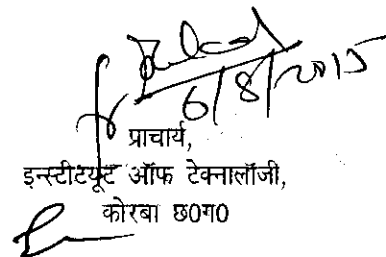 6/8/2015
प्राचार्य,
इन्स्टीटयूट ऑफ टेक्नालॉजी,
कोरबा छ0ग0